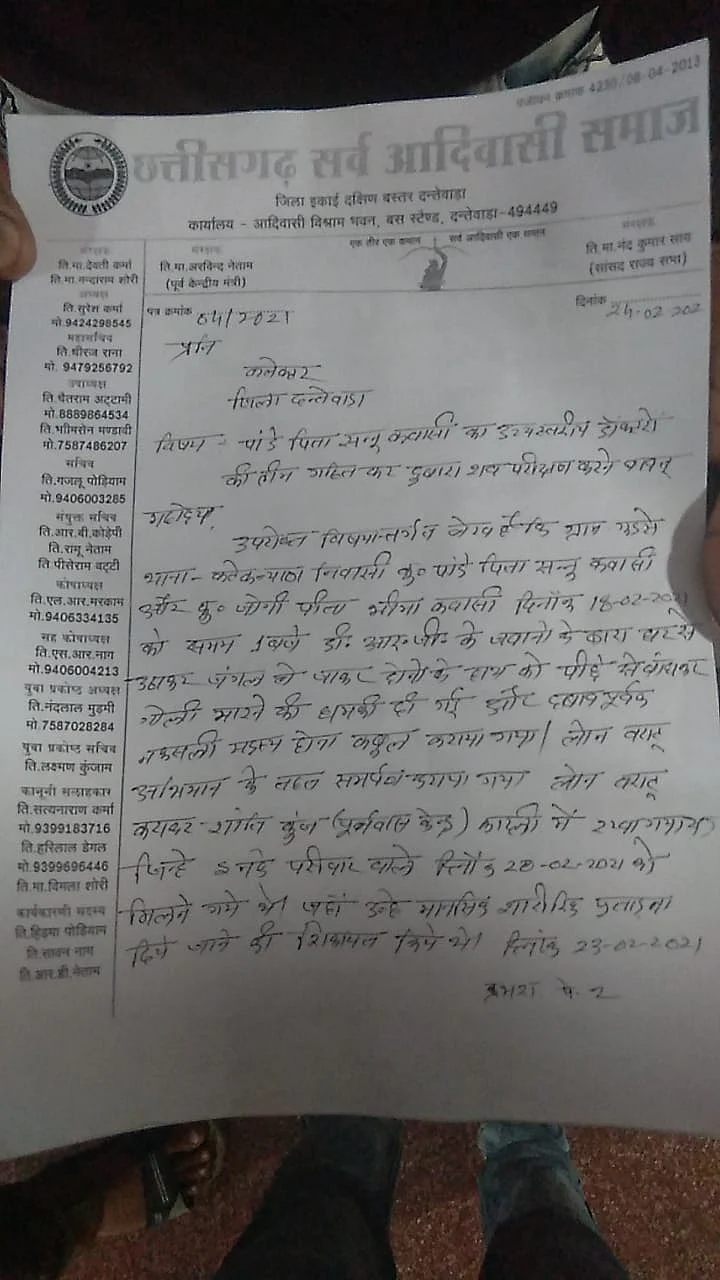 पंजीयन क्रमांक 4230/08-04-2013
छत्तीसगढ़ सर्व आदिवासी समाज
जिला इकाई दक्षिण बस्तर दन्तेवाड़ा
कार्यालय - आदिवासी विश्राम भवन, बस स्टेण्ड, दन्तेवाड़ा-494449
एक तीर एक कमान सर्व आदिवासी एक समान
संरक्षक
ति.मा.देवती कर्मा
ति.मा.नन्दाराम शोरी
संरक्षक
ति.मा.अरविन्द नेताम
(पूर्व केन्द्रीय मंत्री)
संरक्षक
ति.मा.नंद कुमार साय
(सांसद राज्य सभा)
अध्यक्ष
ति.सुरेश कर्मा
मो.9424298545
महासचिव
ति.धीरज राना
मो. 9479256792
उपाध्यक्ष
ति.चैतराम अट्टामी
मो.8889864534
ति.भीमसेन मण्डावी
मो.7587486207
सचिव
ति.गजलू पोड़ियाम
मो.9406003285
संयुक्त सचिव
ति.आर.बी.कोड़ेपी
ति.रामू नेताम
ति.पीलेराम वट्टी
कोषाध्यक्ष
ति.एल.आर.मरकाम
मो.9406334135
सह कोषाध्यक्ष
ति.एस.आर.नाग
मो.9406004213
युवा प्रकोष्ठ अध्यक्ष
ति.नंदलाल मुड़मी
मो.7587028284
युवा प्रकोष्ठ सचिव
ति.लक्ष्मण कुंजाम
कानूनी सलाहकार
ति.सत्यनारायण कर्मा
मो.9399183716
ति.हरिलाल डेगल
मो.9399696446
ति.मा.विमला शोरी
कार्यकारणी सदस्य
ति.हिड़मा पोड़ियाम
ति.सावन नाग
ति.आर.डी.नेताम
पत्र क्रमांक 64/2021
दिनांक 24-02 202
प्रति
कलेक्टर
जिला दन्तेवाडा
विषय - पांडे पिता सन्नू कवासी का उच्चस्तरीय डॉक्टरों
की टीम गठित कर दुबारा शव परीक्षण करने बाबत्
महोदय,
उपरोक्त विषयान्तर्गत लेख है कि ग्राम गुडसे
थाना - कटेकल्याण निवासी कु० पांडे पिता सन्नू कवासी
और कु० जोगी पिता भीमा कवासी दिनांक 18-02-2021
को समय 1 बजे डी. आर. जी. के जवानो के द्वारा घर से
उठाकर जंगल ले जाकर दोनो के हाथ को पीछे से बांधकर
गोली मारने की धमकी दी गई और दबाव पूर्वक
नक्सली सदस्य होना कबूल कराया गया। लोन वर्राटू
अभियान के तहत समर्पण कराया गया लोन वर्राटू
कराकर शांति कुंज (पूर्नवास केन्द्र) कारली में रखा गया था
जिन्हे इनके परिवार वाले दिनांक 20-02-2021 को
मिलने गये थे। जहाँ उन्हे मानसिक शारीरिक प्रताड़ना
दिये जाने की शिकायत किये थे। दिनांक 23-02-2021
क्रमशः पे. 2